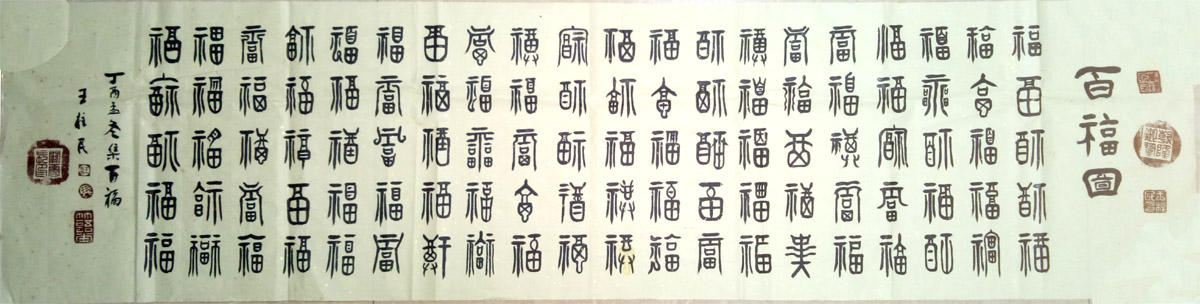 百福圖
福福福福福
福福福福福
福福福福福
福福福福福
福福福福福
福福福福福
福福福福福
福福福福福
福福福福福
福福福福福
福福福福福
福福福福福
福福福福福
福福福福福
福福福福福
福福福福福
福福福福福
福福福福福
福福福福福
福福福福福
丁酉孟冬集百福
王民